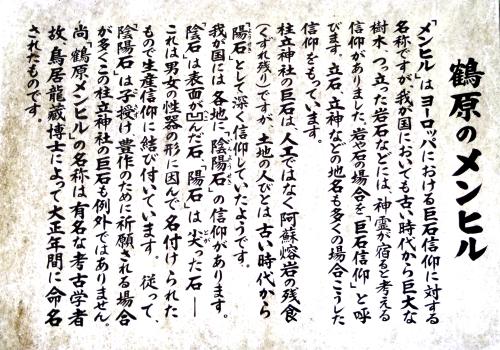 鶴原のメンヒル
「メンヒル」はヨーロッパにおける巨石信仰に対する
名称ですが、我が国においても古い時代から巨大な
樹木、つっ立った岩石などには、神霊が宿ると考える
信仰がありました。岩や石の場合を「巨石信仰」と呼
びます。立石、立神などの地名も多くの場合こうした
信仰をもっています。
柱立神社の巨石は、人工ではなく阿蘇熔岩の残食
(くずれ残り)ですが、土地の人びとは古い時代から
「陽石」として深く信仰していたようです。
我が国には、各地に「陰陽石」の信仰があります。
「陰石」は表面が凹んだ石、「陽石」は尖った石―
これは男女の性器の形に因んで名付けられた
もので生産信仰に結び付いています。従って、
「陰陽石」は子授け、豊作のために祈願される場合
が多くこの柱立神社の巨石も例外ではありません。
尚「鶴原メンヒル」の名称は有名な考古学者
故、鳥居龍蔵博士によって大正年間に命名
されたものです。